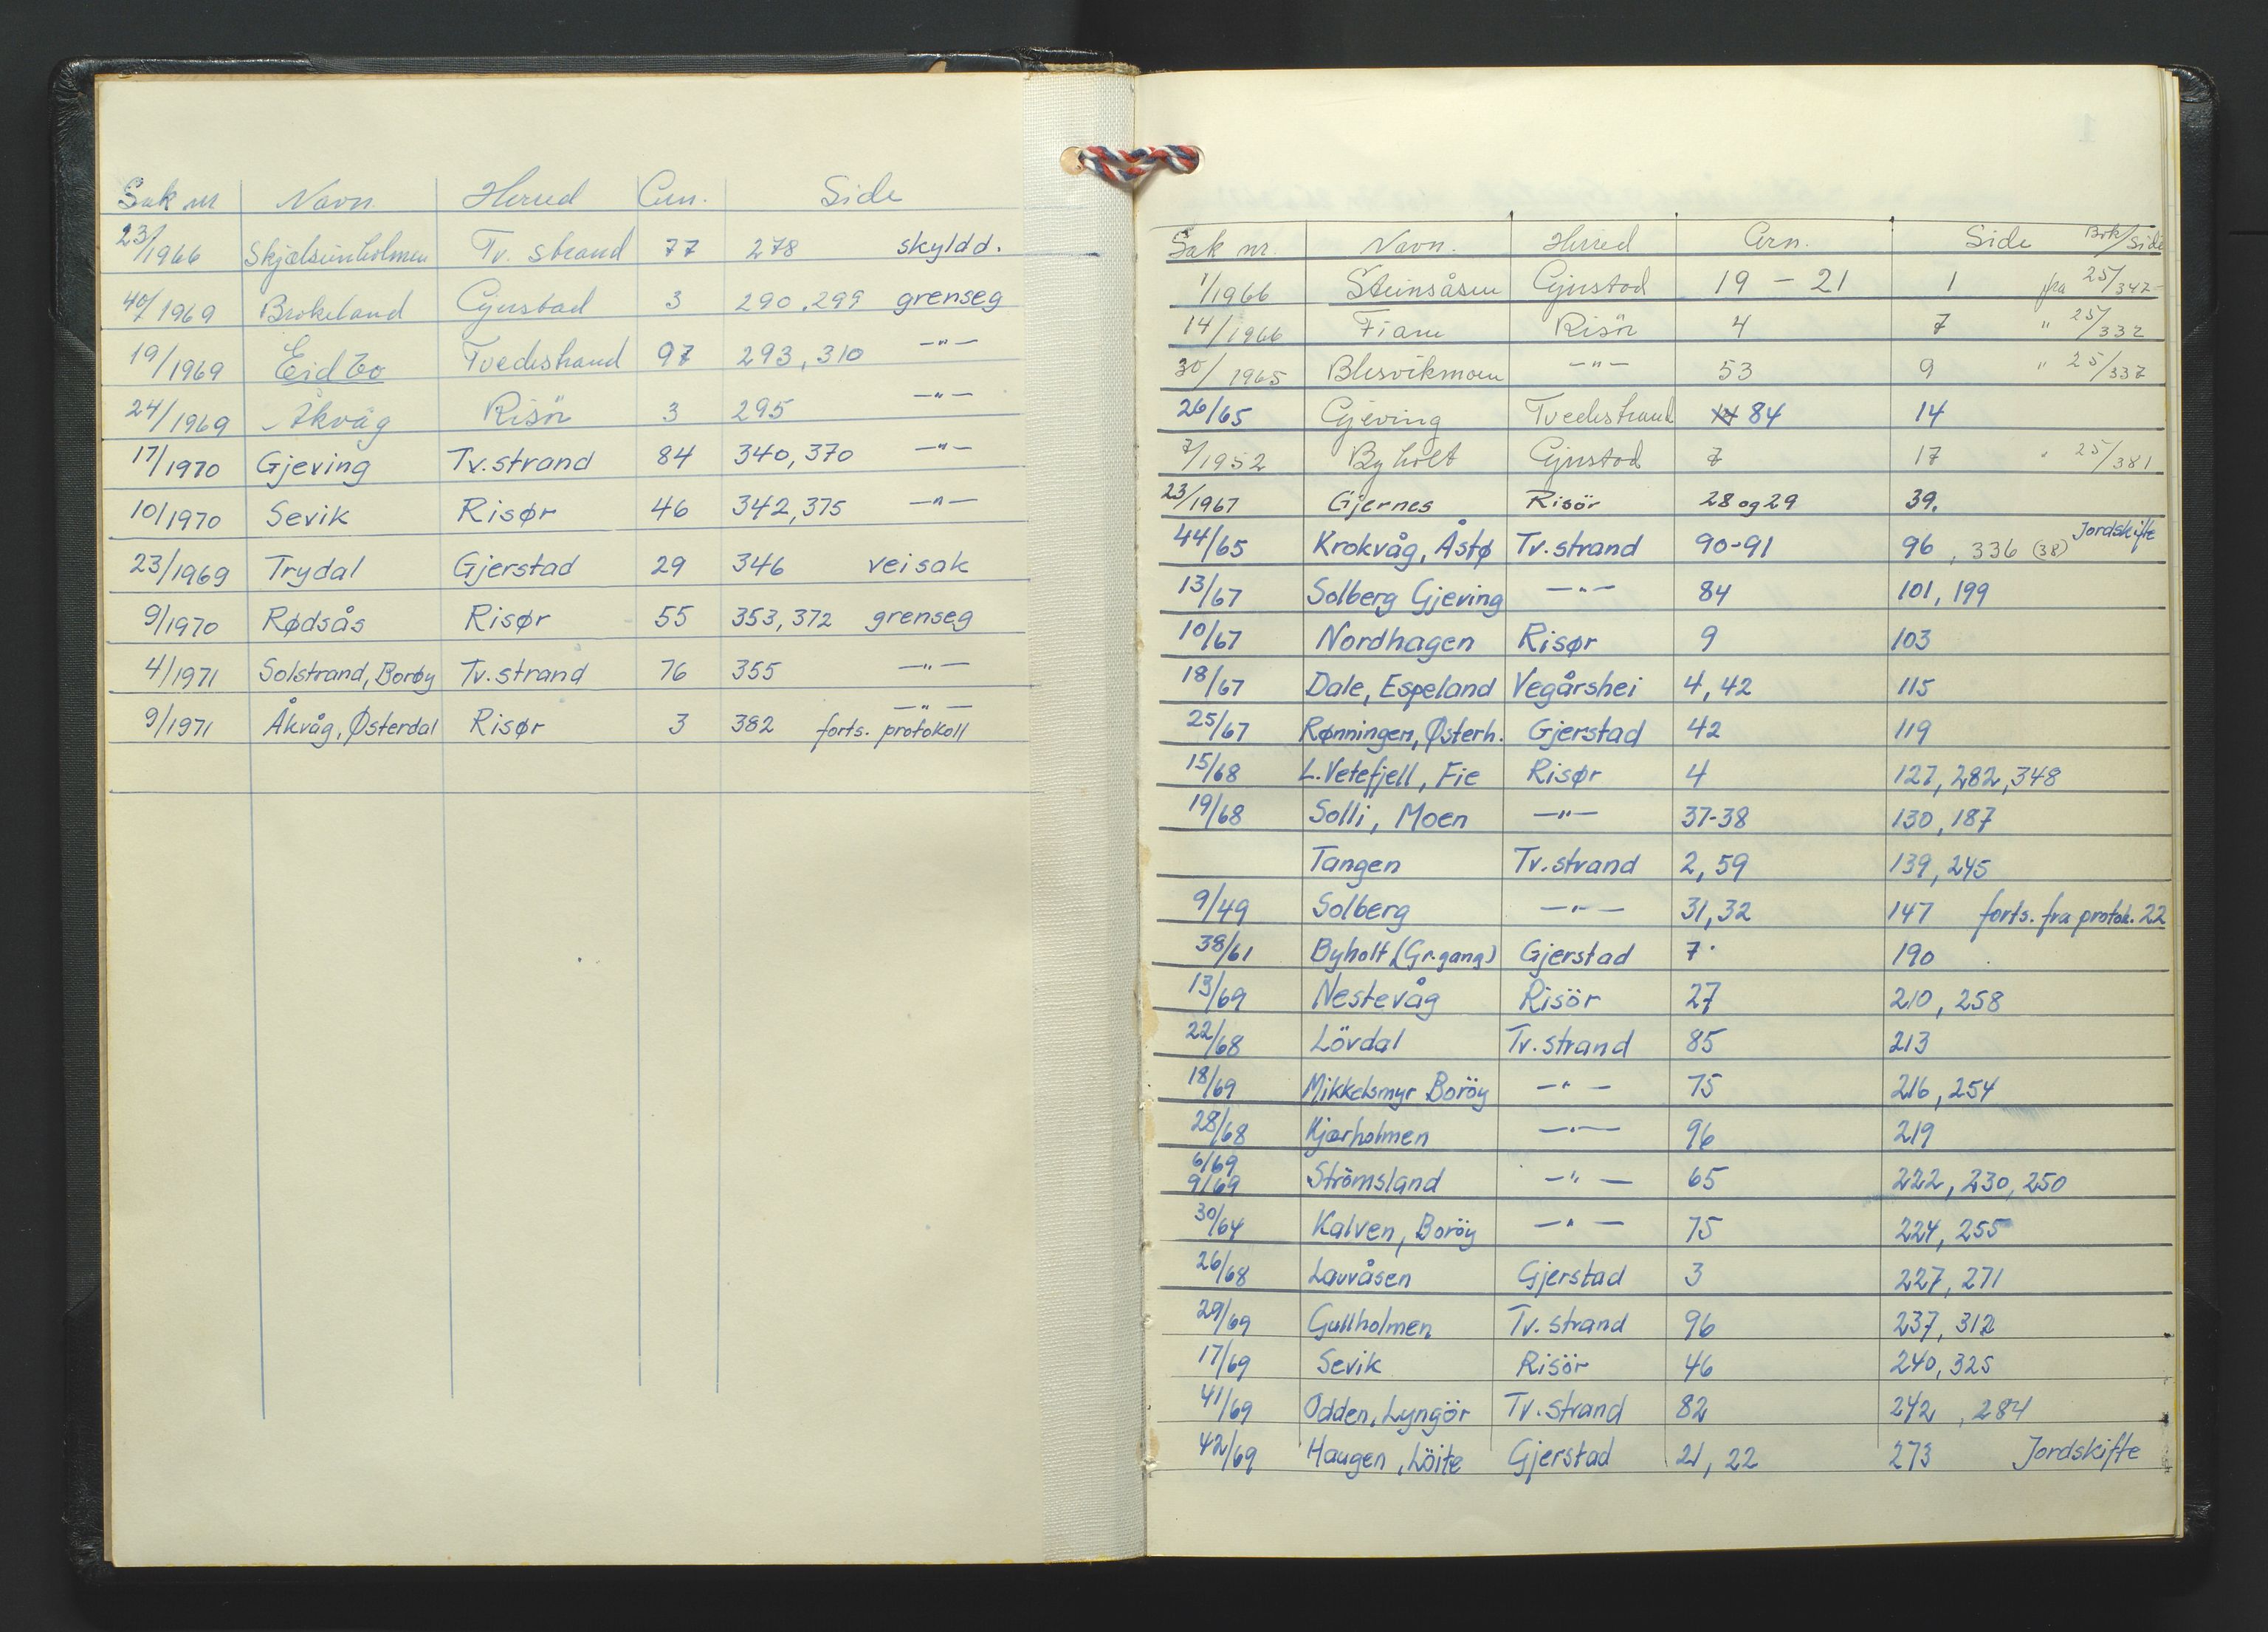 Sak nr Navn. Herred Grn. Side
23/1966 Skjælsundholmen Tv. strand 77 278 skyldd.
40/1969 Brokeland Gjerstad 3 290.299 grenseg
19/1969 Eidbo Tvedestrand 97 293, 310 —"—
24/1969 Åkvåg Risör 3 295 —"—
17/1970 Gjeving Tv.strand 84 340, 370 —"—
10/1970 Sevik Risør 46 342, 375 —"—
23/1969 Trydal Gjerstad 29 346 veisak
9/1970 Rødsås Risør 55 353, 372 grenseg
4/1971 Solstrand, Borøy Tv. strand 76 355 —"—
9/1971 Åkvåg, Østerdal Risør 3 382 forts. protokoll —"—
Sak nr. Navn. Herred Grn. Side Bok/Side
1/1966 Steinsåsen Gjerstad 19 - 21 1 fra 25/347
14/1966 Fiane Risör 4 7 " 25/332
30/1965 Blesvikmoen —"— 53 9 " 25/337
26/65 Gjeving Tvedestrand 84 14
7/1952 Byholt Gjerstad 7 17 " 25/381
23/1967 Gjernes Risör 28 og 29 39.
44/65 Krokvåg, Åstø Tv. strand 90-91 96, 336 (38) Jordskifte
13/67 Solberg Gjeving —"— 84 101, 199
10/67 Nordhagen Risør 9 103
18/67 Dale, Espeland Vegårshei 4, 42 115
25/67 Rønningen, Østerh. Gjerstad 42 119
15/68 L. Vetefjell, Fie Risør 4 127, 282, 348
19/68 Solli, Moen —"— 37-38 130, 187
Tangen Tv. strand 2, 59 139, 245
9/49 Solberg —"— 31, 32 147 forts. fra protok. 22
38/61 Byholt (Gr.gang) Gjerstad 7 190
13/69 Nestevåg Risör 27 210, 258
22/68 Lövdal Tv. strand 85 213
18/69 Mikkelsmyr Boröy —"— 75 216, 254
28/68 Kjærholmen —"— 96 219
6/69
9/69 Strömsland —"— 65 222, 230, 250
30/64 Kalven, Boröy —"— 75 224, 255
26/68 Lauvåsen Gjerstad 3 227, 271
29/69 Gullholmen Tv. strand 96 237, 312
17/69 Sevik Risör 46 240, 325
41/69 Odden, Lyngör Tv. strand 82 242, 284
42/69 Haugen, Löite Gjerstad 21, 22 273 Jordskifte